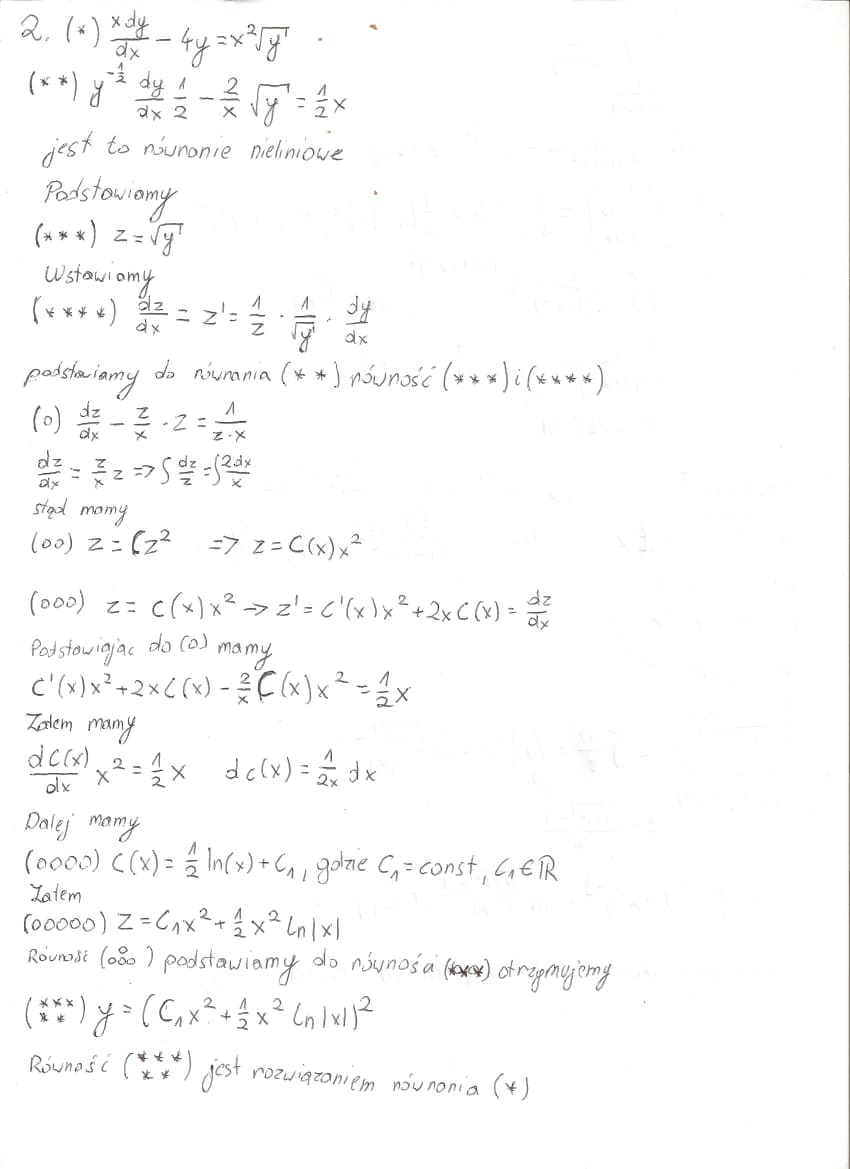 2. (*) xdy/dx - 4y = x²√y
(**) y^(-1/2) dy/dx 1/2 - 2/x √y = 1/2 x
jest to równanie nieliniowe
Podstawiamy
(***) z = √y
Wstawiamy
(****) dz/dx = z' = 1/z · 1/√y · dy/dx
podstawiamy do równania (**) równość (***) i (****)
(0) dz/dx - z/x · z = 1/(z·x)
dz/dx = z/x z => ∫ dz/z = ∫ 2dx/x
stąd mamy
(00) z = Cz² => z = C(x)x²
(000) z = C(x)x² → z' = C'(x)x² + 2xC(x) = dz/dx
Podstawiając do (0) mamy
C'(x)x² + 2xC(x) - 2/x C(x)x² = 1/2 x
Zatem mamy
dC(x)/dx x² = 1/2 x dc(x) = 1/2x dx
Dalej mamy
(0000) C(x) = 1/2 ln(x) + C₁, gdzie C₁ = const, C₁ ∈ ℝ
Zatem
(00000) z = C₁x² + 1/2 x² ln|x|
Równość (00000) podstawiamy do równości (***) otrzymujemy
(*****) y = (C₁x² + 1/2 x² ln|x|)²
Równość (*****) jest rozwiązaniem równania (*)